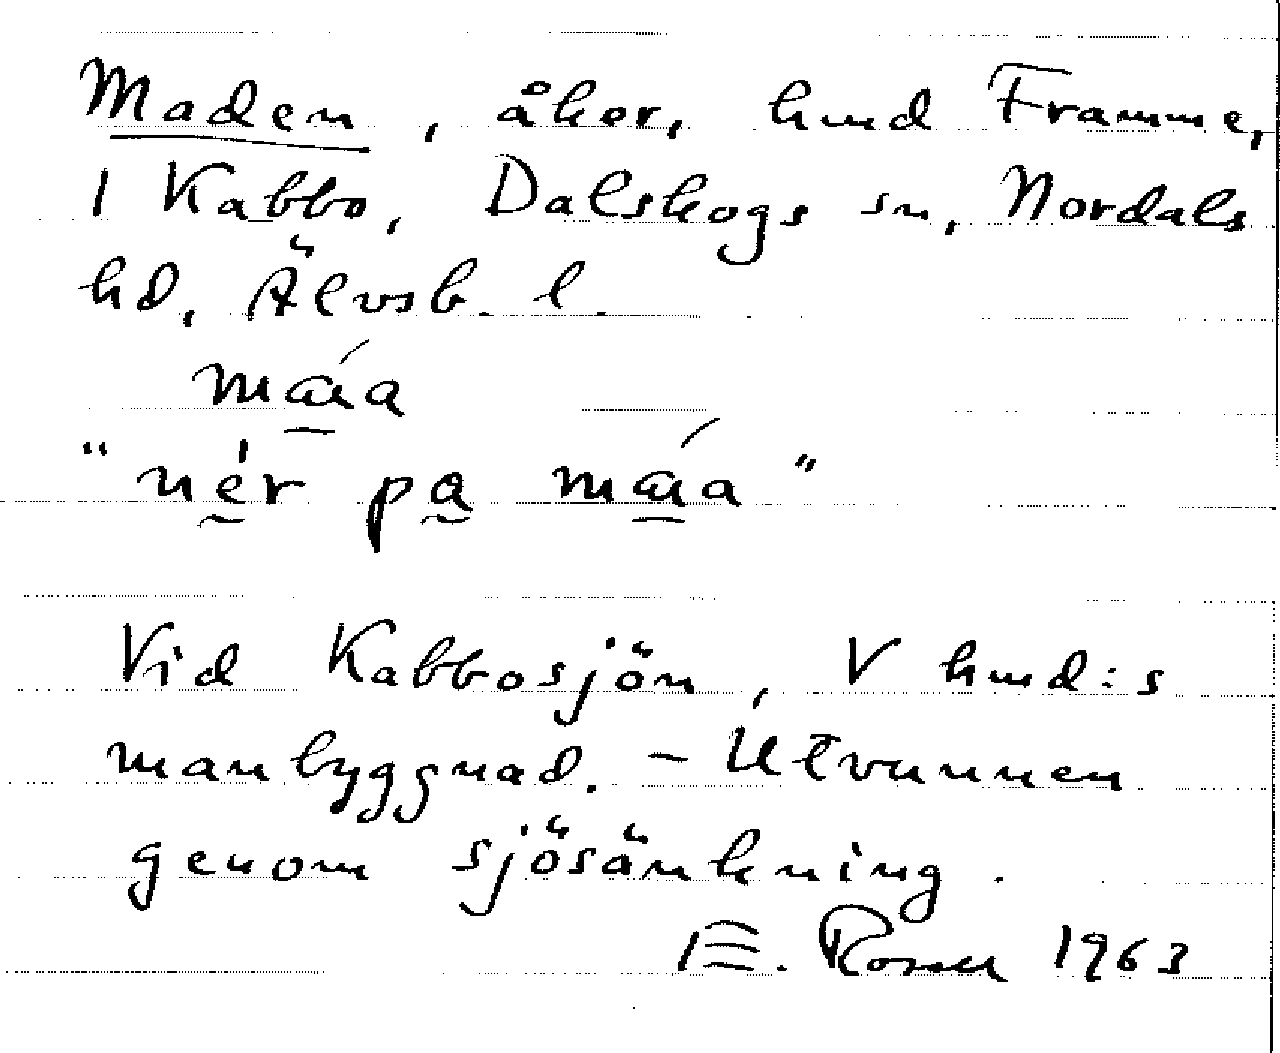 Maden, åker, hmd Framme,
1 Kabbo, Dalskogs sn, Nordals
hd, Älvsb. l.
"nér pa
Vid Kabbosjön, V hmd:s
manbyggnad. - Utvunnen
genom sjösänkning.
E. Rosell 1963